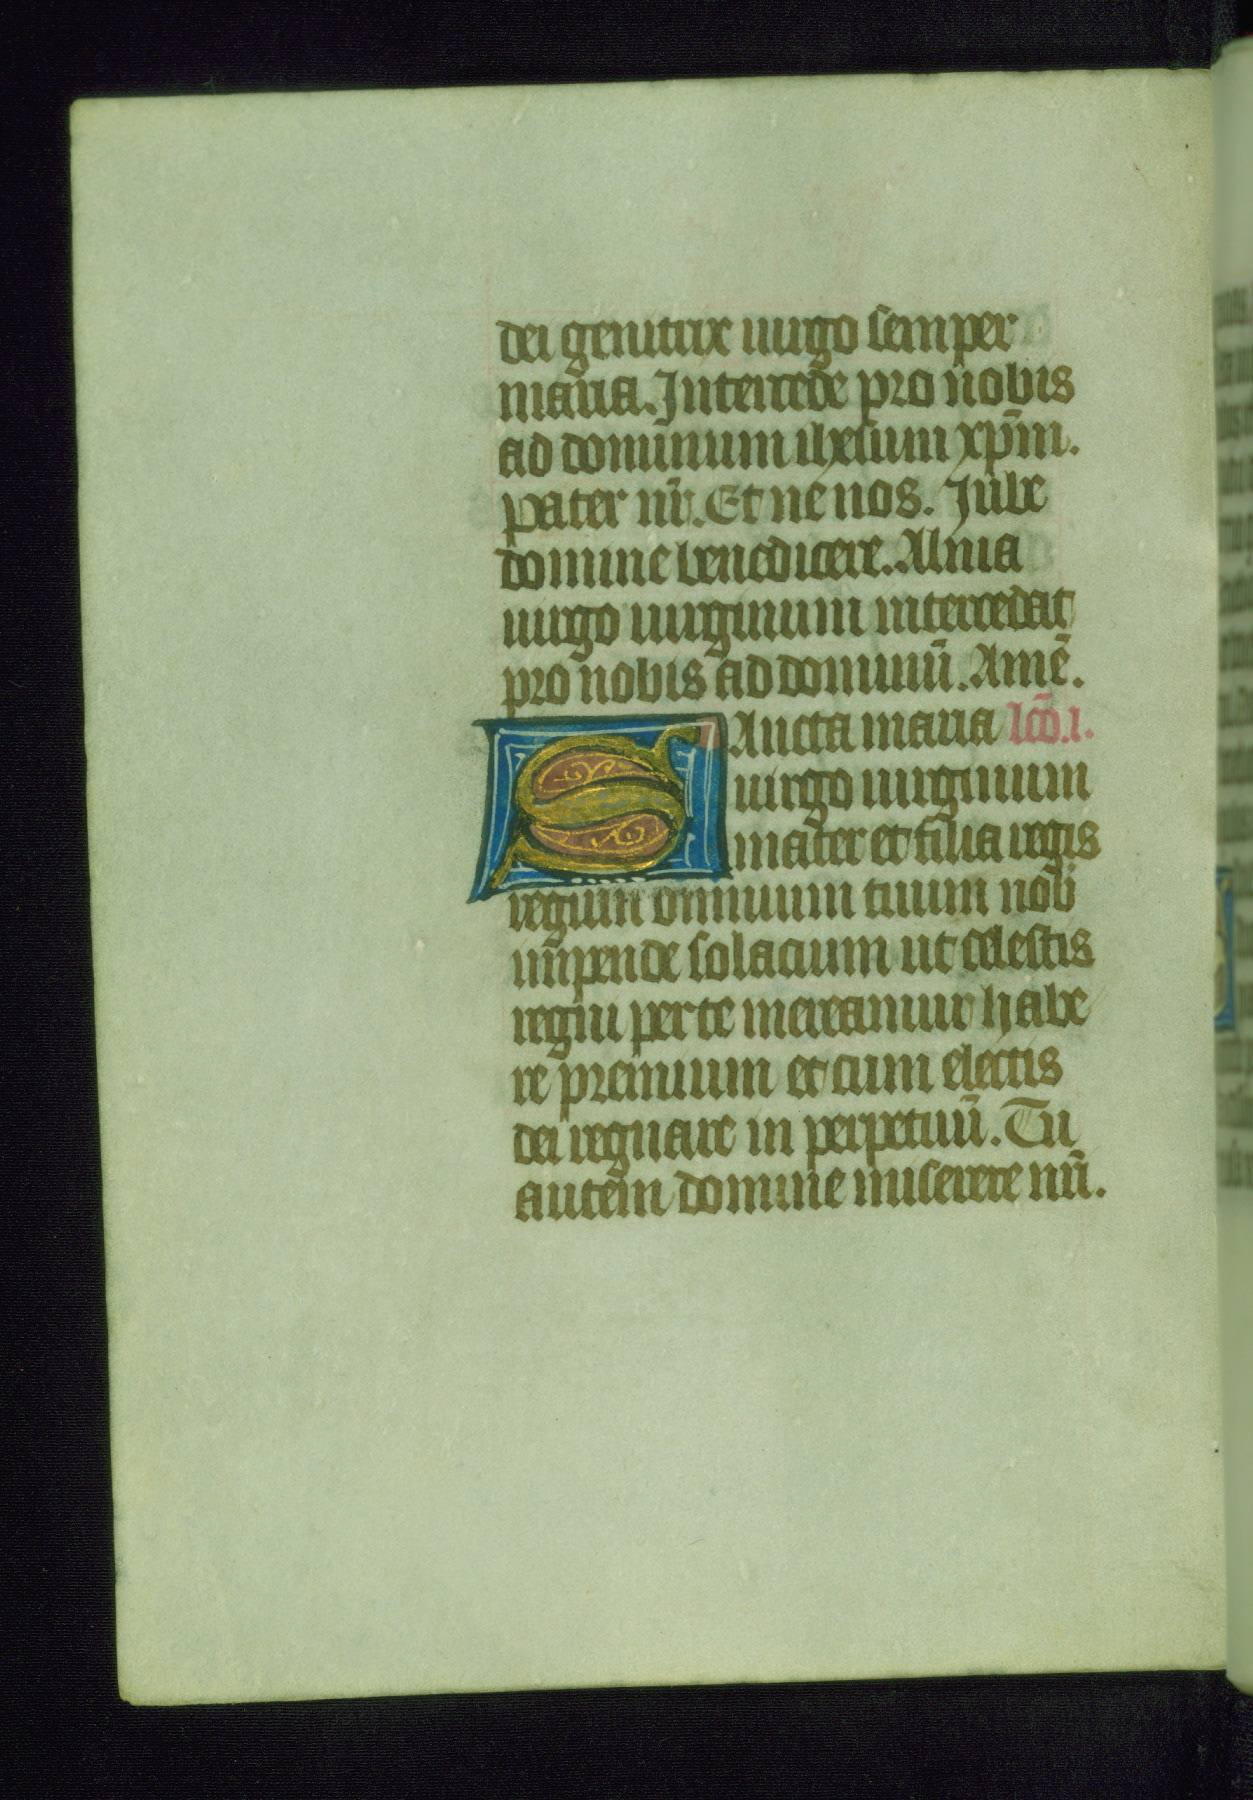 dei genitrix uirgo semper
maria. Intercede pro nobis
ad dominum ihesum xp̄m.
Pater nr̄. Et ne nos. Iube
domine benedicere. Alma
uirgo uirginum intercedat
pro nobis ad dominū. Amē.
SAncta maria lc̄o. i.
uirgo uirginum
mater et filia regis
regum omnium tuum nob̄
impende solacium ut celestis
regni per te mereamur habe
re premium et cum electis
dei regnare in perpetuū. Tu
autem domine miserere nr̄i.